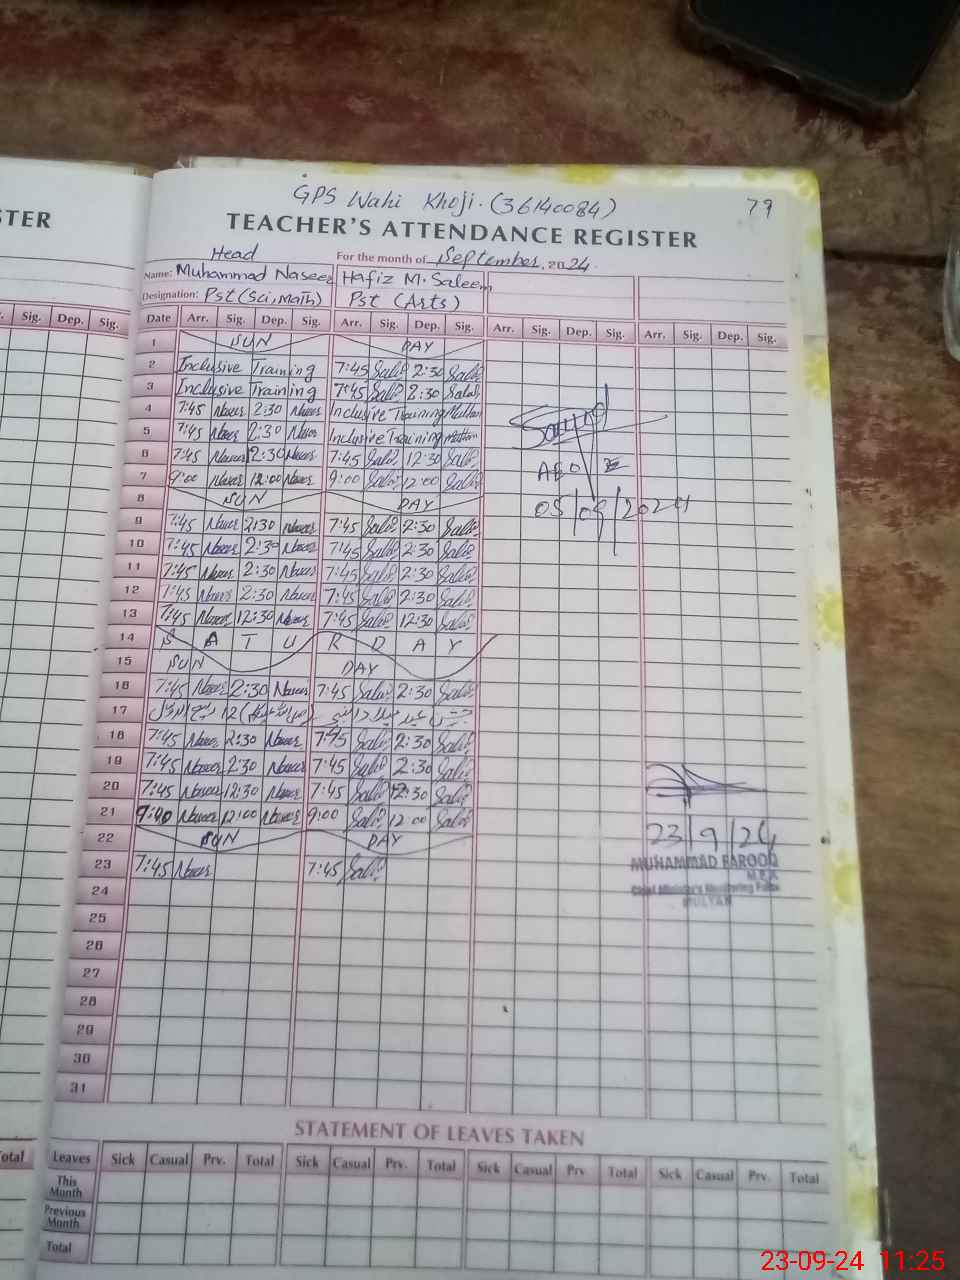 STER
GPS Wahi Khoji. (36140084) 79
TEACHER'S ATTENDANCE REGISTER
Head For the month of September, 2024.
Name: Muhammad Naseer Hafiz M. Saleem
Designation: Pst (Sci, Math) Pst (Arts)
Sig. Dep. Sig. Date Arr. Sig. Dep. Sig. Arr. Sig. Dep. Sig. Arr. Sig. Dep. Sig. Arr. Sig. Dep. Sig.
1 SUN DAY
2 Inclusive Training 7:45 2:30
3 Inclusive Training 7:45 2:30
4 7:45 2:30 Inclusive Training
5 7:45 2:30 Inclusive Training
6 7:45 2:30 7:45 12:30
7 9:00 12:00 9:00 12:00
8 SUN DAY
9 7:45 2:30 7:45 2:30
10 7:45 2:30 7:45 2:30
11 7:45 2:30 7:45 2:30
12 7:45 2:30 7:45 2:30
13 7:45 12:30 7:45 12:30
14 S A T U R D A Y
15 SUN DAY
16 7:45 2:30 7:45 2:30
17 12 ربیع الاول جشن عید میلاد النبی
18 7:45 2:30 7:45 2:30
19 7:45 2:30 7:45 2:30
20 7:45 12:30 7:45 12:30
21 9:00 12:00 9:00 12:00
22 SUN DAY
23 7:45 7:45
24
25
26
27
28
29
30
31
AEO
05/09/2024
23/9/24
MUHAMMAD FAROOQ
M.E.A
Chief Minister's Monitoring Force
MULTAN
STATEMENT OF LEAVES TAKEN
Total Leaves Sick Casual Prv. Total Sick Casual Prv. Total Sick Casual Prv Total Sick Casual Prv. Total
This Month
Previous Month
Total
23-09-24 11:25